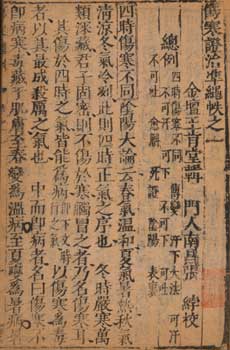 傷寒證治準繩帙之一
金壇王肯堂輯 門人南昌張 校
總例 四時傷寒不同 汗下大法 可汗
不可汗 可下 不可下 可吐
不可吐 愈解 死證 陰陽 表裏
四時傷寒不同陰陽大論云春氣溫和夏氣暑熱秋氣
清涼冬氣冷冽此則四時正氣之序也 冬時嚴寒萬
類深藏君子固密則不傷於寒觸冒之者乃名傷寒耳
其傷於四時之氣皆能為病 以傷寒為毒
者以其最成殺厲之氣也 中而即病者名曰傷寒不
即病者寒毒藏于肌膚至春變為溫病至夏變為暑病